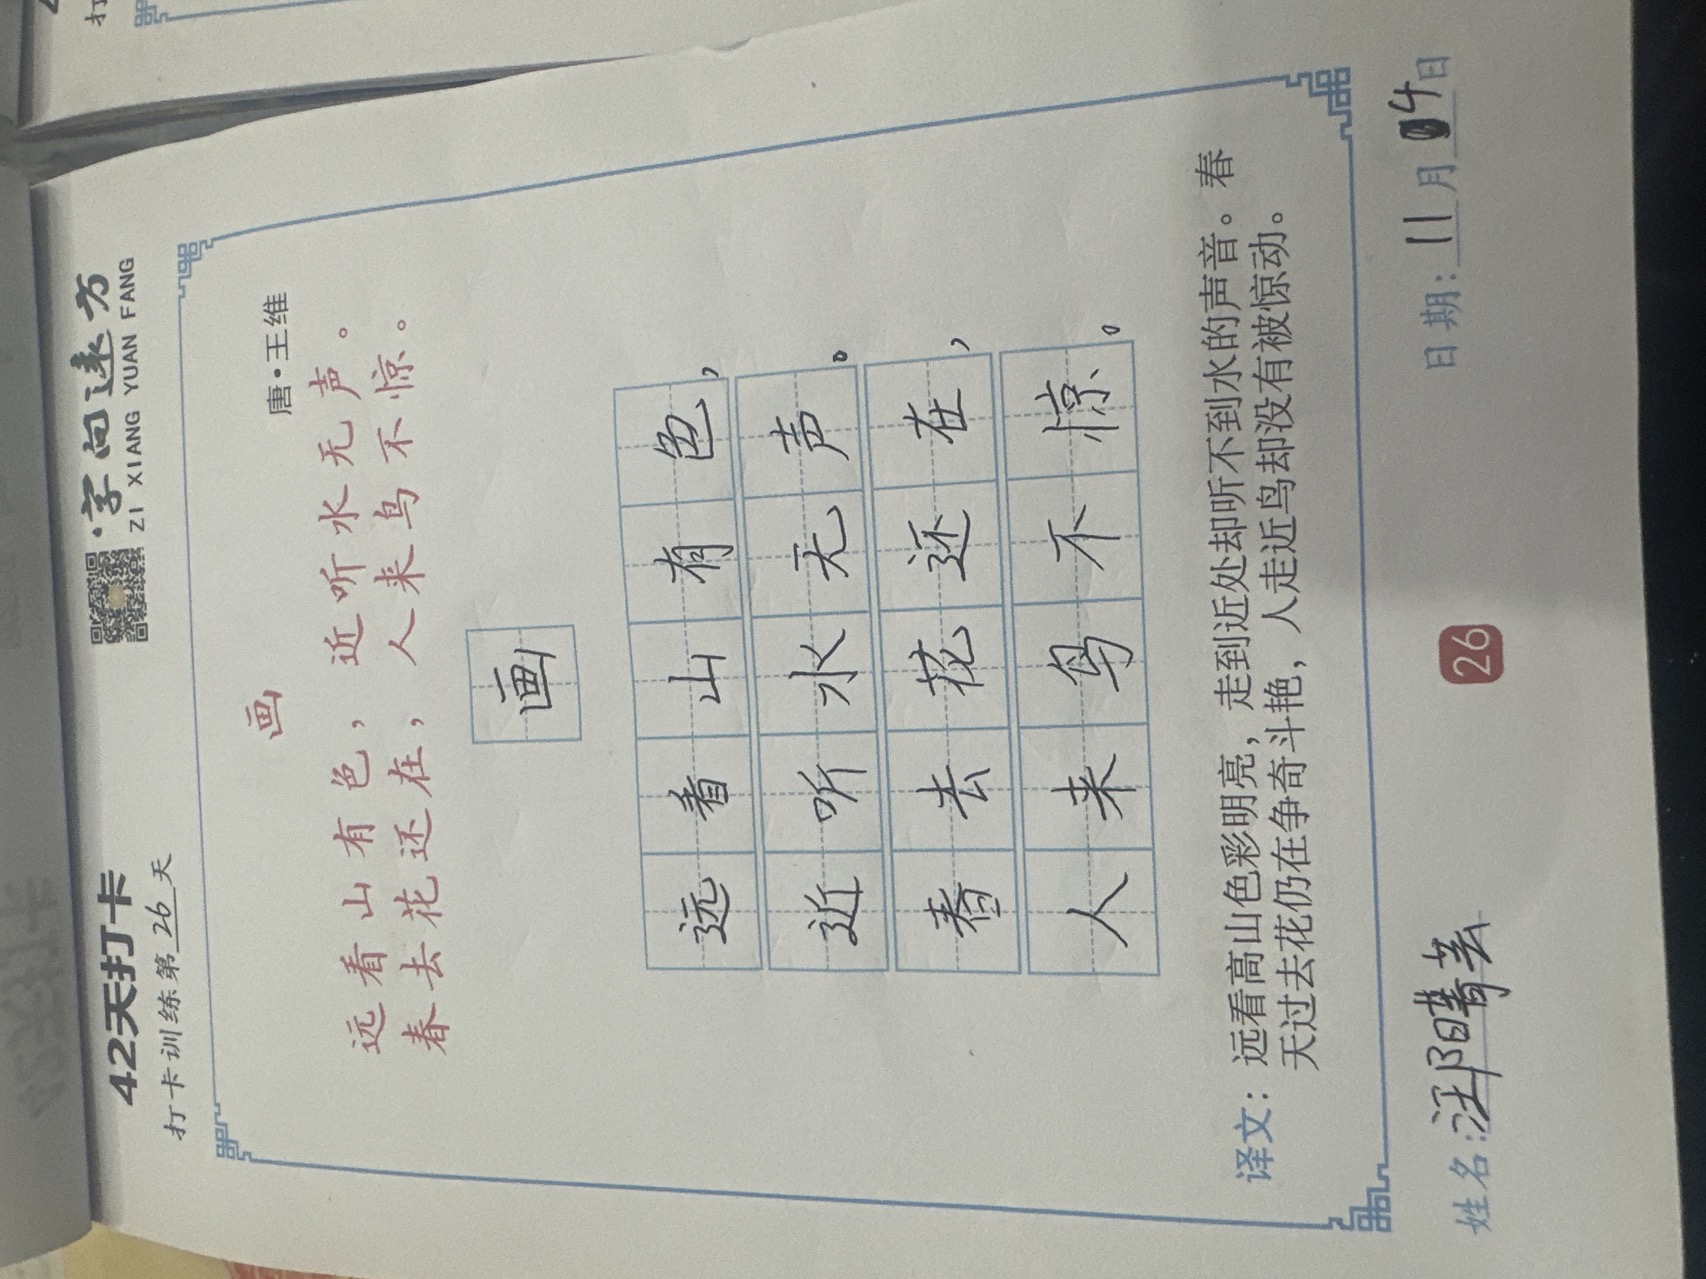 42天打卡
打卡训练第26天
·字向速方
ZI XIANG YUAN FANG
画
唐·王维
远看山有色，近听水无声。
春去花还在，人来鸟不惊。
画
远看山有色，
近听水无声。
春去花还在，
人来鸟不惊。
译文：远看高山色彩明亮，走到近处却听不到水的声音。春
天过去花仍在争奇斗艳，人走近鸟却没有被惊动。
姓名：汪晴芸
26
日期：11月04日